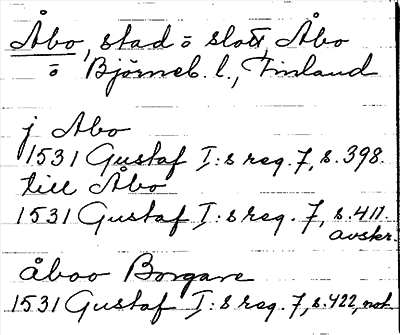 Åbo, stad o slott, Åbo
o Björneb. l., Finland
j Abo
1531 Gustaf I:s reg. 7, s. 398.
till Åbo
1531 Gustaf I:s reg. 7, s. 411.
avskr.
åboo Borgare
1531 Gustaf I:s reg. 7, s. 422, not.